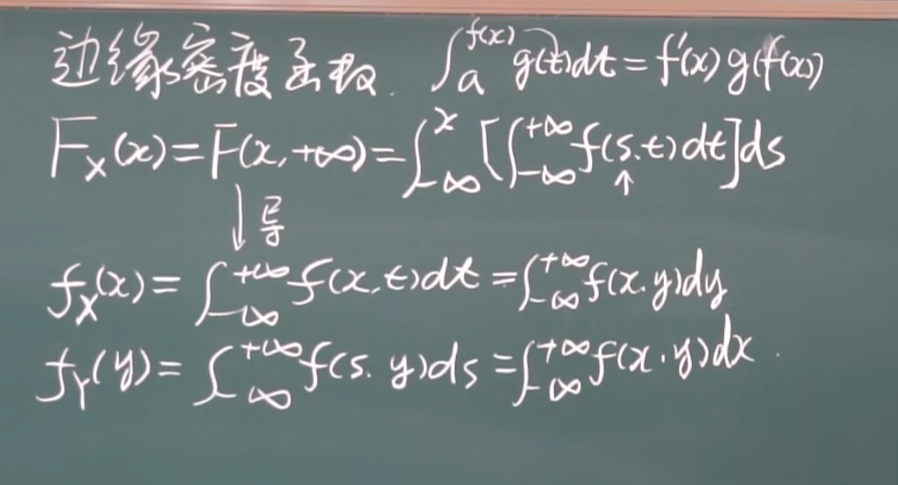 边缘密度函数. ∫_a^{f(x)} g(t)dt = f'(x)g(f(x))
F_X(x) = F(x,+∞) = ∫_{-∞}^{x} [∫_{-∞}^{+∞} f(s.t)dt]ds
↓导 ↑
f_X(x) = ∫_{-∞}^{+∞} f(x,t)dt = ∫_{-∞}^{+∞} f(x.y)dy
f_Y(y) = ∫_{-∞}^{+∞} f(s.y)ds = ∫_{-∞}^{+∞} f(x.y)dx.